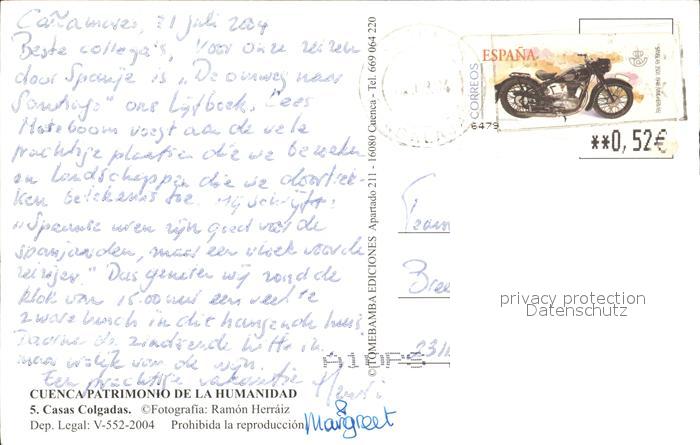 Cañamares, 21 juli 2004
Beste collega's, Voor onze reizen
door Spanje is "De omweg naar
Santiago" ons lijfboek. Cees
Noteboom voegt aan de vele
prachtige plaatsen die we bezoeken
en landschappen die we doortrek-
ken betekenis toe. Hij schrijft:
"Spaanse uren zijn goed voor de
spanjaarden, maar een vloek voor de
reiziger." Dus genieten wij rond de
klok van 15.00 uur een veel te
zware lunch in dit hangende huis
Daarna de zinderende hitte in
maar vrolijk van de wijn.
Een prachtige vakantie
&
Margreet
CUENCA PATRIMONIO DE LA HUMANIDAD
5. Casas Colgadas. ©Fotografía: Ramón Herráiz
Dep. Legal: V-552-2004 Prohibida la reproducción
© TOMEBAMBA EDICIONES Apartado 211 - 16080 Cuenca - Tel. 669 064 220
ESPAÑA
CORREOS
6479
**0,52€
Team
Bree
231
privacy protection
Datenschutz